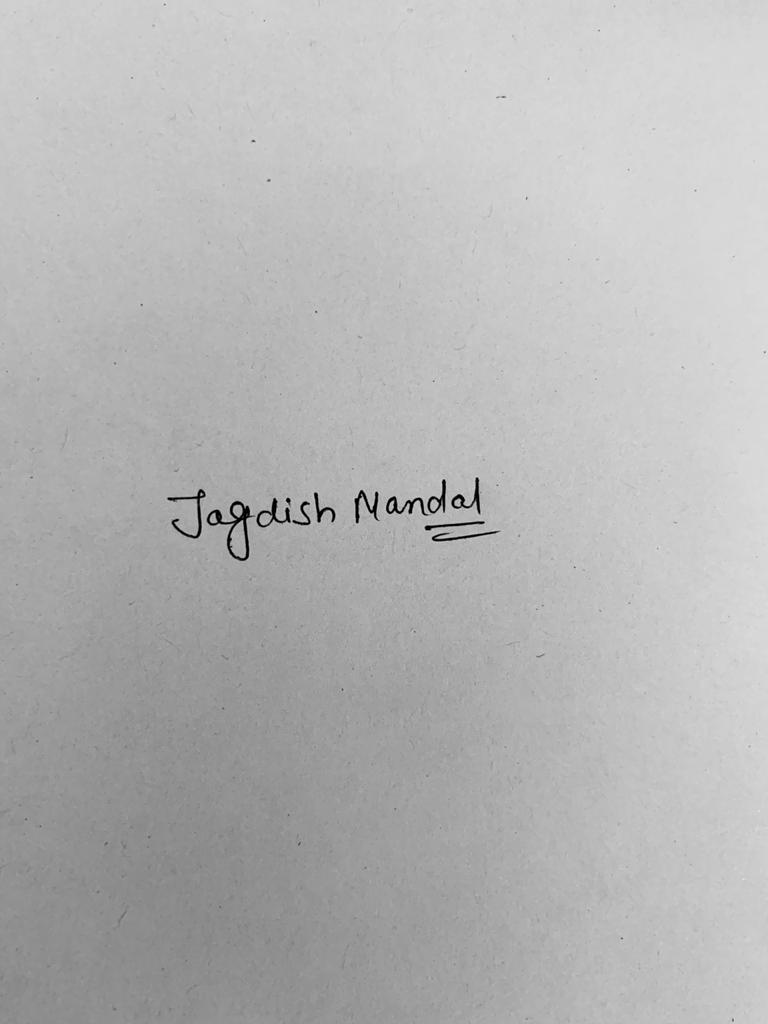 Jagdish Mandal